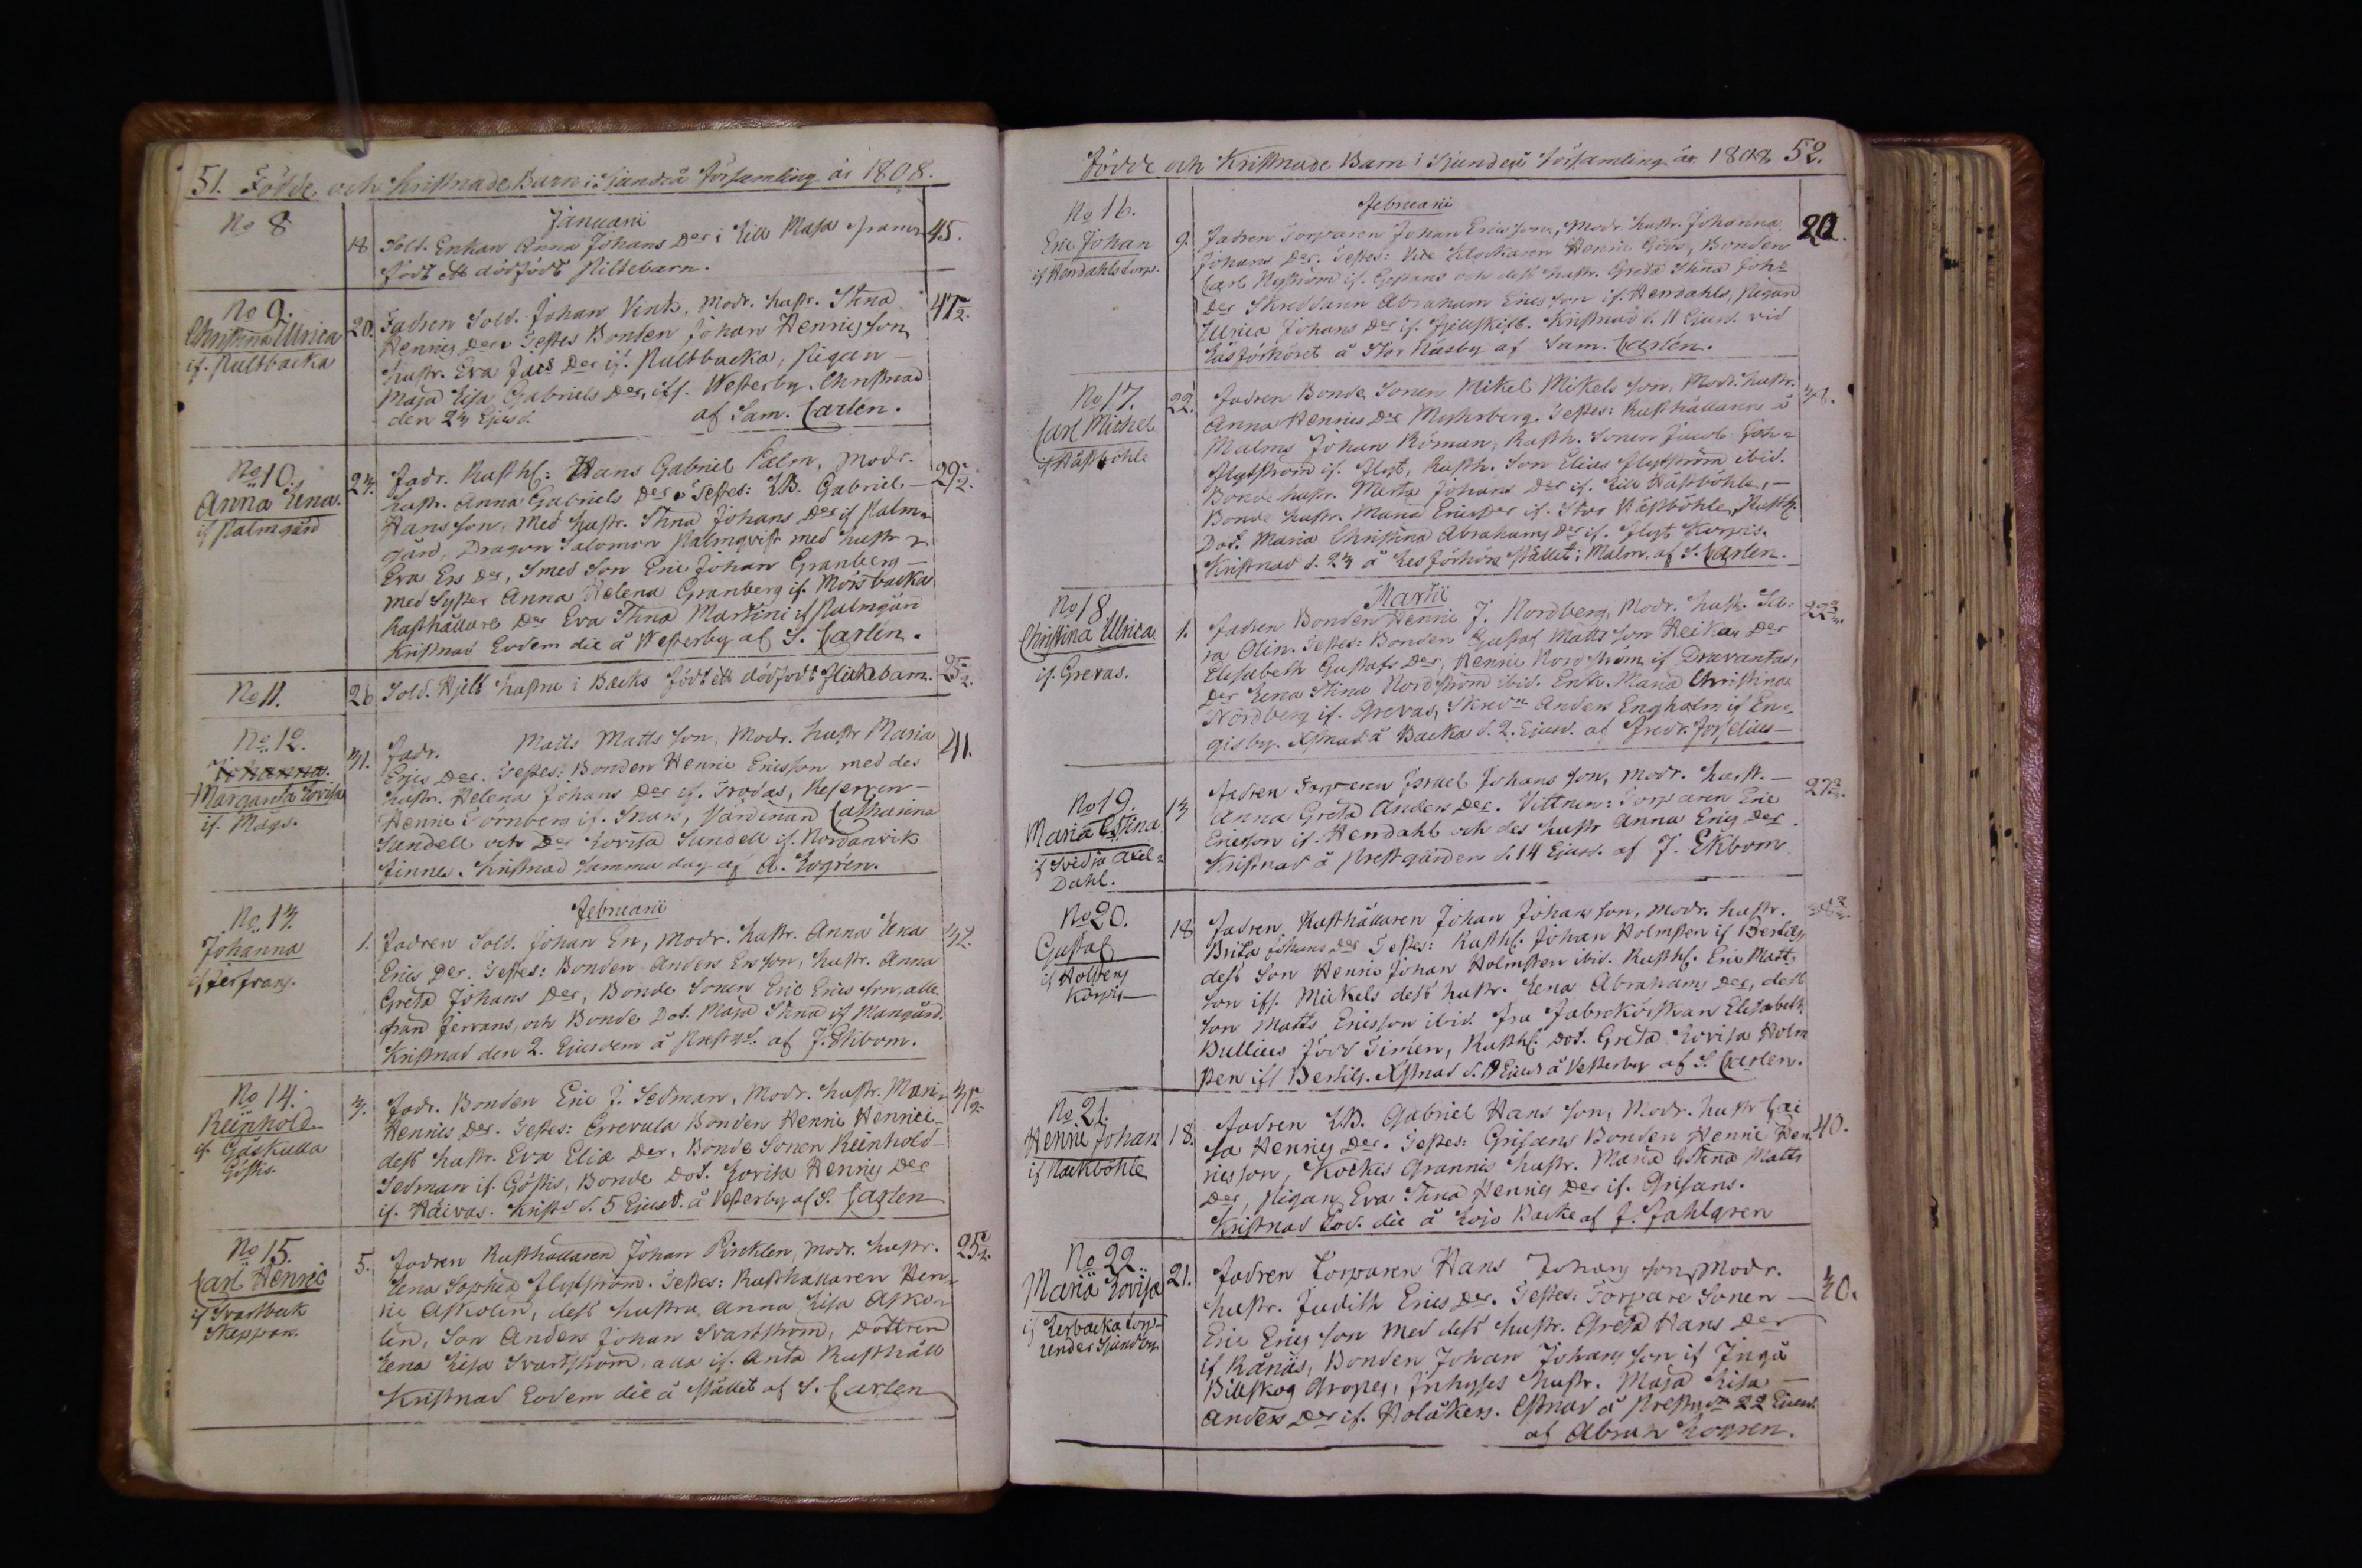 51. Födde och Kristnade Barn i Sjundeå Församling år 1808.
No 8
Januarii
18 Sold. Enkan Anna Johans Dor i Lill Maja 45.
födt ett dödfödt Piltebarn.
No 9. Christina Ulrica if.
20. Fadren Sold. Johan Vink, Modr. hustr. Stina 41 1/2.
Henrics Dor. Testes Bonden Johan Henricsson
hustr. Eva Dor if. Pigan
Maja Lisa Gabriels Dor, iff. Westerby. Christnad
den 23 Ejusd. af Sam. Carlén.
No 10. Anna Lena. if Palmgård
23. Fadr. Rusthl: Hans Gabriel Palm, Modr. 29 1/2.
hustr. Anna Gabriels Dor. Testes: LB. Gabriel
Hansson, med hustr. Stina Johans Dor if Palm=
gård, Dragon Salomon Palmqvist med hustr
Eva Ers Dor, Smed Son Eric Johan Granberg
med Syster Anna Helena Granberg if. Morsbacka
Rusthållare Dor Eva Stina Martini if Palmgård
Kristnad Eodem die å Westerby af S. Carlén.
No 11. 26 Sold. Hjelt hustru i Backs födt ett dödfödt flickebarn. 25 1/2.
No 12. Johanna. Margareta Lovisa if. Mags.
31. Fadr. Matts Mattsson, Modr. hustr Maria 41.
Erics Dor. Testes: Bonden Henric Ericsson med des
hustr. Helena Johans Dor if. Reserven
Henric Törnberg if. Värdinnan Catharina
Sundell och Dor Lovisa Sundell if. Nordanvik
Finnes. Kristnad Samma dag af A. Logren.
Februarii
No 13. Johanna
1. Fadren Sold. Johan En, Modr. hustr. Anna Lena 32.
Erics Dor. Testes: Bonden Anders Ersson, hustr. Anna
Greta Johans Dor, Bonde Sonen Eric Ericsson, alla
från Jerfvans, och Bonde Dot. Maja Stina if Mangård.
Kristnad den 2. Ejusdem å Prestgd. af J. Ekbom.
No 14. Reinhold if. Gåskulla Göstis.
3. Fadr. Bonden Eric J. Sedman, Modr. hustr. Maria 31 1/2.
Henrics Dor. Testes: Bonden Henric Henrici
dess hustr. Eva Eliæ Dor, Bonde Sonen Reinhold
Sedman if. Göstis, Bonde Dot. Lovisa Henrics Dor
if. Håivas. Kristd d. 5 Ejusd. å Vesterby af S. Carlén
No 15. Carl Henric if Svartbeck Skeppars.
5. Fadren Rusthållaren Johan Modr. hustr. 25 1/2.
Lena Sophia Flytström. Testes: Rusthållaren Hen=
ric Askolin, dess hustru Anna Lisa Asko=
lin, Son Anders Johan Svartström, Dottren
Lena Lisa Svartström, alla if. Rusthåll
Kristnad Eodem die å Stället af S. Carlén
Födde och Kristnade Barn i Sjundeå Församling år 1808. 52.
Februarii
No 16. Eric Johan if Hendahls torp.
9. Fadren Torparen Johan Ericsson, Modr. hustr. Johanna 20.
Johans Dor. Testes: Vice Klockaren Henric Bonden
Carl Nyström if. och dess hustr. Greta Stina Johs
Dor Skreddaren Abraham Ericsson if. Hendahls, Pigan
Ulrica Johans Dor if. Fjellskift. Kristnad d. 11 Ejusd. vid
Läsförhöret å Stor Näsby af Sam. Carlén.
No 17. Carl Michel
22. Fadren Bonde Sonen Mikel Mikelsson, Modr. hustr. 38.
Anna Henrics Dor Testes: Rusthållaren å
Malms Johan Röman, Rusth. Sonen Jacob Joh=
Flytström if. Flyt, Rusth. Son Elias Flytström ibid.
Bonde hustr. Merta Johans Dor if. Lill Hästböhle,
Bonde hustr. Maria Erics Dor if. Stor Hästböhle, Rusthl.
Dot. Maria Christina Abrahams Dor if. Flyt Korpis.
Kristnad d. 23 å Läsförhörs Stället i Malm. af S. Carlén.
Martii
No 18 Christina Ulrica if. Grevas.
1. Fadren Bonden Henric J. Nordberg, Modr. hustr.
Olin. Testes: Bonden Gustaf Mattsson Dor
Elisabeth Gustafs Dor, Henric Nordström if
Dor Lena Stina Nordström ibid. Enk. Maria Christina
Nordberg if. Grevas, Anders Engholm if En=
gisby. Xstnad å Backa d. 2. Ejusd. af Fredr. Forselius
No 19. Maria Stina if Svidja Axel= Dahl.
13 Fadren Torparen Israel Johansson, Modr. hustr.
Anna Greta Anders Dor. Vittnen: Torparen Eric
Ericsson if. Hendahl och des hustr Anna Erics Dor
Kristnad å Prestgården d. 14 Ejusd. af J. Ekbom
No 20. Gustaf if Korpis
18 Fadren Rusthållaren Johan Johansson, Modr. hustr.
Brita Johans Dor Testes: Rusthl: Johan Holmsten if
dess Son Henric Johan Holmsten ibid. Rusthl. Eric Matts
son iff. Mickels dess hustr. Lena Abrahams Dor, dess
Son Matts Ericsson ibid. Fru Elisabeth
Bullius född Timén, Rusthl. Dot. Greta Lovisa Holm
sten iff Xstnad d. 19 Ejusd å Vesterby af S. Carlén.
No 21. Henric Johan if Backböhle
18. Fadren LB. Gabriel Hansson, Modr. hustr Cai 40.
sa Henrics Dor. Testes: Grisans Bonden Henric Hen=
ricsson, Kockis Grannis hustr. Maria Stina Matts
Dor, Pigan Eva Stina Henrics Dor if. Grisans.
Kristnad Eod. die å Lojo Backe af J. Fahlgren
No 22. Maria Lovisa if Lerbacka torp under Sjundby
21. Fadren Torparen Hans Johansson, Modr. 30.
hustr. Judith Erics Dor. Testes: Torpare Sonen
Eric Ericsson med dess hustr. Greta Hans Dor
if Rånäs, Bonden Johan Johansson if Ingå
Billskog Gropes, Inhyses hustr. Maja Lisa
Anders Dor if. Holåkers. Xstnad å Prestgdn 22 Ejusd.
af Abrah Logren.